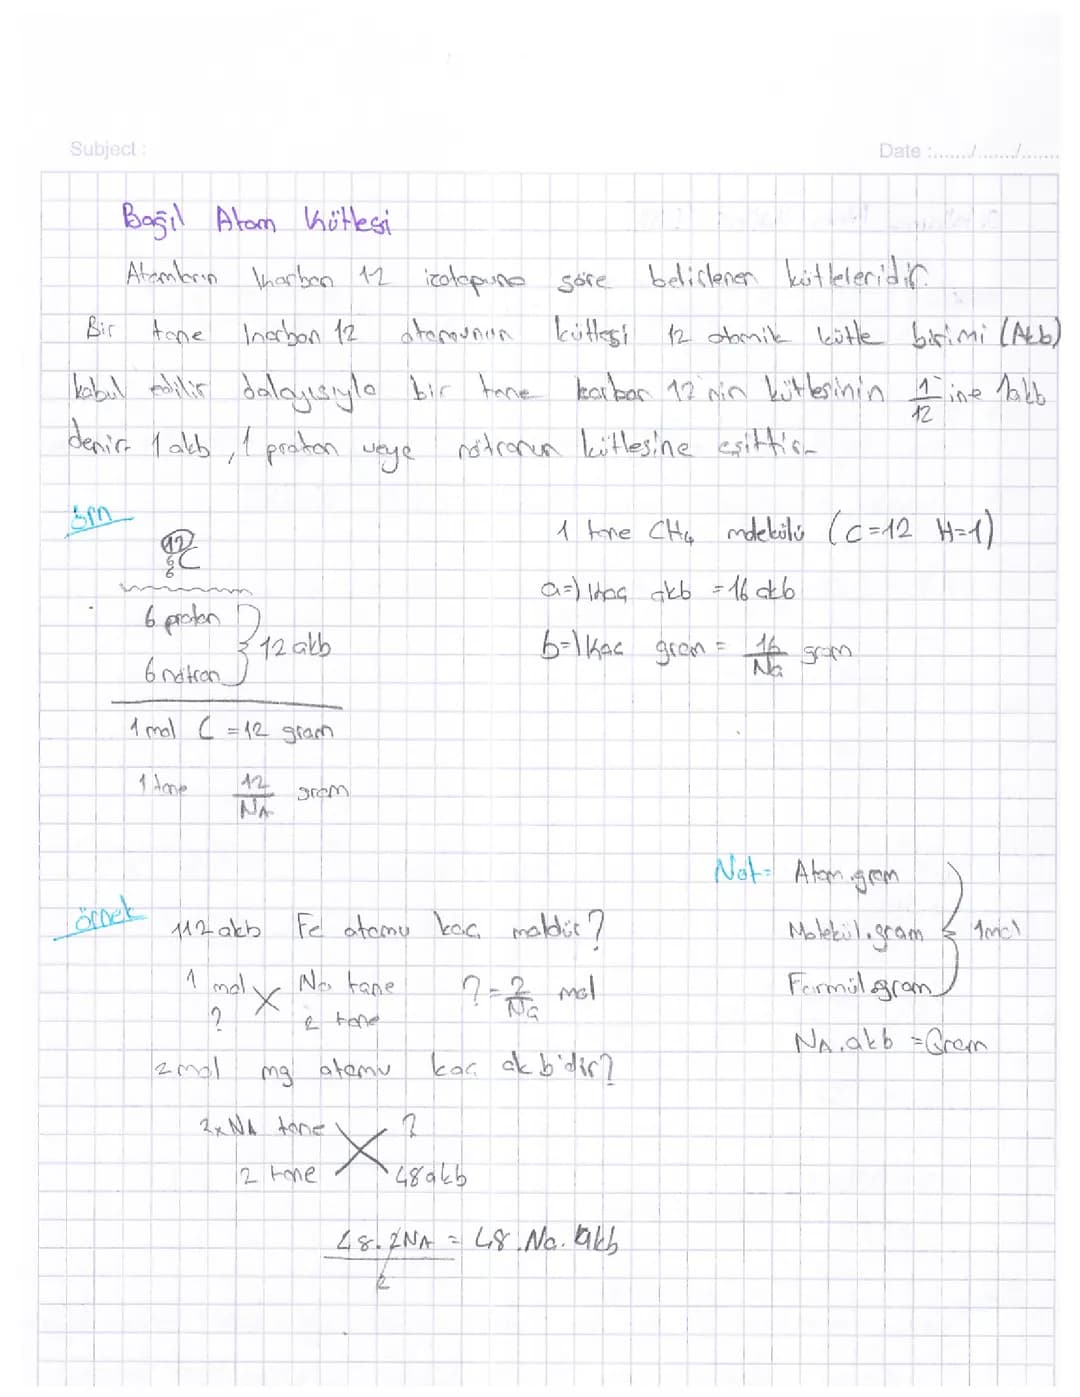 Subject :
Date :....../......./.......
Bağıl Atom Kütlesi
Atomların karbon 12 izotopuna göre belirlenen kütleleridir.
Bir tane karbon 12 atomunun kütlesi 12 atomik kütle birimi (Akb)
kabul edilir dolayısıyla bir tane karbon 12'nin kütlesinin 1/12 ine 1akb
denir. 1 akb, 1 proton veya nötronun kütlesine eşittir.
örn
12 6 6 C
6 proton
6 nötron
} 12 akb
1 mol C = 12 gram
1 tane 12/NA gram
1 tane CH4 molekülü (C=12 H=1)
a=) kaç akb = 16 akb
b=) Kaç gram = 16/Na gram
Not= Atom.gram
Molekül.gram
Formül gram
} 1mol
NA.akb = Gram
örnek
112 akb Fe atomu kaç moldür?
1 mol Na tane
? 2 tane
? = 2/Na mol
2 mol mg atomu kaç akb'dir?
2xNA tane ?
2 tane 48akb
48.2NA/2 = 48.Na.akb